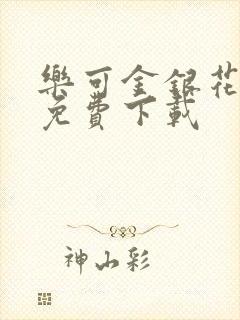 樂可金銀花
免費下載
神山彩